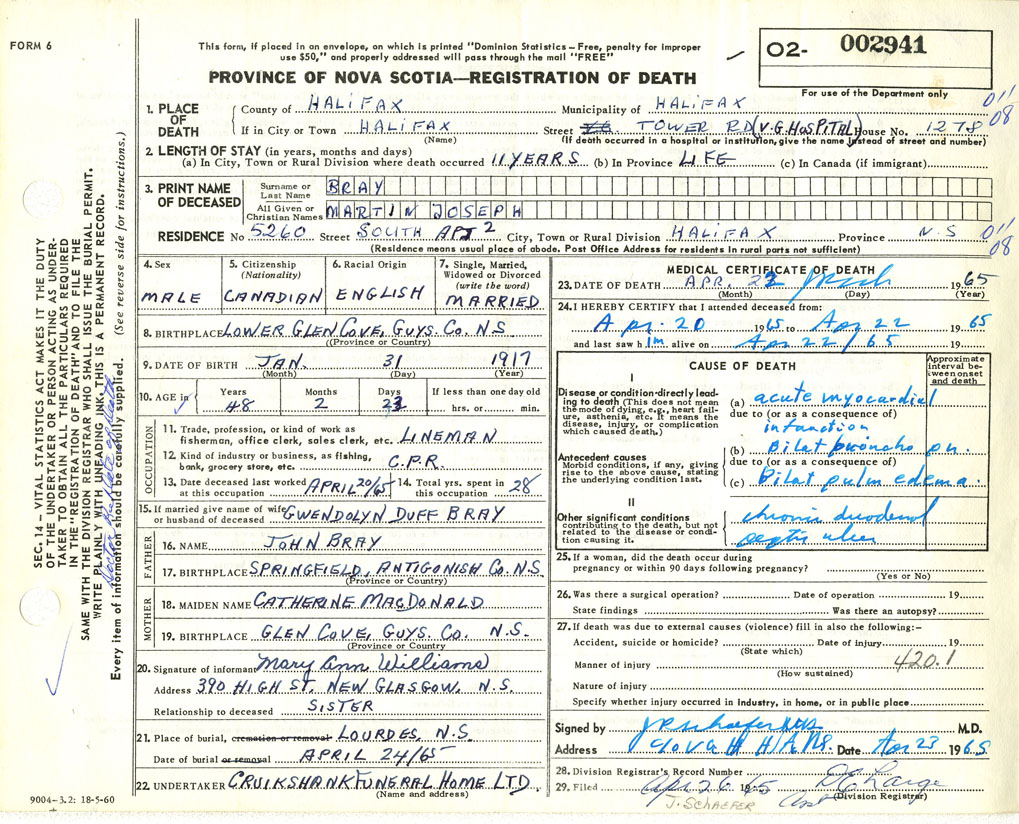 FORM 6
This form, if placed in an envelope, on which is printed "Dominion Statistics – Free, penalty for improper
use $50," and properly addressed will pass through the mail "FREE"
PROVINCE OF NOVA SCOTIA—REGISTRATION OF DEATH
02- 002941
For use of the Department only
1. PLACE OF DEATH
County of HALIFAX Municipality of HALIFAX
If in City or Town HALIFAX Street TOWER RD (V.G. HOSPITAL) House No. 1278
(Name) (If death occurred in a hospital or institution, give the name instead of street and number)
011
08
2. LENGTH OF STAY (in years, months and days)
(a) In City, Town or Rural Division where death occurred 11 YEARS (b) In Province LIFE (c) In Canada (if immigrant)
3. PRINT NAME OF DECEASED
Surname or Last Name BRAY
All Given or Christian Names MARTIN JOSEPH
RESIDENCE No 5260 Street SOUTH APT 2 City, Town or Rural Division HALIFAX Province N.S
(Residence means usual place of abode. Post Office Address for residents in rural parts not sufficient)
011
08
4. Sex MALE
5. Citizenship (Nationality) CANADIAN
6. Racial Origin ENGLISH
7. Single, Married, Widowed or Divorced (write the word) MARRIED
8. BIRTHPLACE LOWER GLEN COVE, GUYS. CO. N S
(Province or Country)
9. DATE OF BIRTH JAN. 31 1917
(Month) (Day) (Year)
10. AGE in Years 48 Months 2 Days 22 If less than one day old hrs. or min.
OCCUPATION
11. Trade, profession, or kind of work as
fisherman, office clerk, sales clerk, etc. LINEMAN
12. Kind of industry or business, as fishing,
bank, grocery store, etc. C.P.R.
13. Date deceased last worked at this occupation APRIL 20/65 14. Total yrs. spent in this occupation 28
15. If married give name of wife or husband of deceased GWENDOLYN DUFF BRAY
FATHER
16. NAME JOHN BRAY
17. BIRTHPLACE SPRINGFIELD, ANTIGONISH CO. N.S.
(Province or Country)
MOTHER
18. MAIDEN NAME CATHERINE MACDONALD
19. BIRTHPLACE GLEN COVE, GUYS. CO. N.S.
(Province or Country)
20. Signature of informant Mary Ann Williams
Address 390 HIGH ST. NEW GLASGOW, N.S.
Relationship to deceased SISTER
21. Place of burial, cremation or removal LOURDES, N.S.
Date of burial or removal APRIL 24/65
22. UNDERTAKER CRUIKSHANK FUNERAL HOME LTD.
(Name and address)
MEDICAL CERTIFICATE OF DEATH
23. DATE OF DEATH APR. 22 1965
(Month) (Day) (Year)
24. I HEREBY CERTIFY that I attended deceased from:
Apr. 20 1965 to Apr 22 1965
and last saw him alive on Apr 22/65 19
CAUSE OF DEATH
Approximate interval between onset and death
I
Disease or condition directly leading to death (This does not mean the mode of dying, e.g., heart failure, asthenia, etc. It means the disease, injury, or complication which caused death.)
(a) acute myocardial
due to (or as a consequence of)
infarction
Antecedent causes
Morbid conditions, if any, giving rise to the above cause, stating the underlying condition last.
(b) Bilat broncho pn.
due to (or as a consequence of)
(c) Bilat pulm edema.
II
Other significant conditions contributing to the death, but not related to the disease or condition causing it.
chronic duodenal
peptic ulcer
25. If a woman, did the death occur during
pregnancy or within 90 days following pregnancy?
(Yes or No)
26. Was there a surgical operation? Date of operation 19
State findings Was there an autopsy?
27. If death was due to external causes (violence) fill in also the following:-
Accident, suicide or homicide? Date of injury 19
(State which)
Manner of injury 420.1
(How sustained)
Nature of injury
Specify whether injury occurred in industry, in home, or in public place
Signed by M.D.
Address Date Apr 23 1965
28. Division Registrar's Record Number
29. Filed Apr 26 1965
(Division Registrar)
J. SCHAEFER
9004-3.2: 18-5-60
SEC. 14 – VITAL STATISTICS ACT MAKES IT THE DUTY
OF THE UNDERTAKER OR PERSON ACTING AS UNDER-
TAKER TO OBTAIN ALL THE PARTICULARS REQUIRED
IN THE "REGISTRATION OF DEATH" AND TO FILE THE
SAME WITH THE DIVISION REGISTRAR WHO SHALL ISSUE THE BURIAL PERMIT.
WRITE PLAINLY WITH UNFADING INK. THIS IS A PERMANENT RECORD.
Every item of information should be carefully supplied. (See reverse side for instructions.)